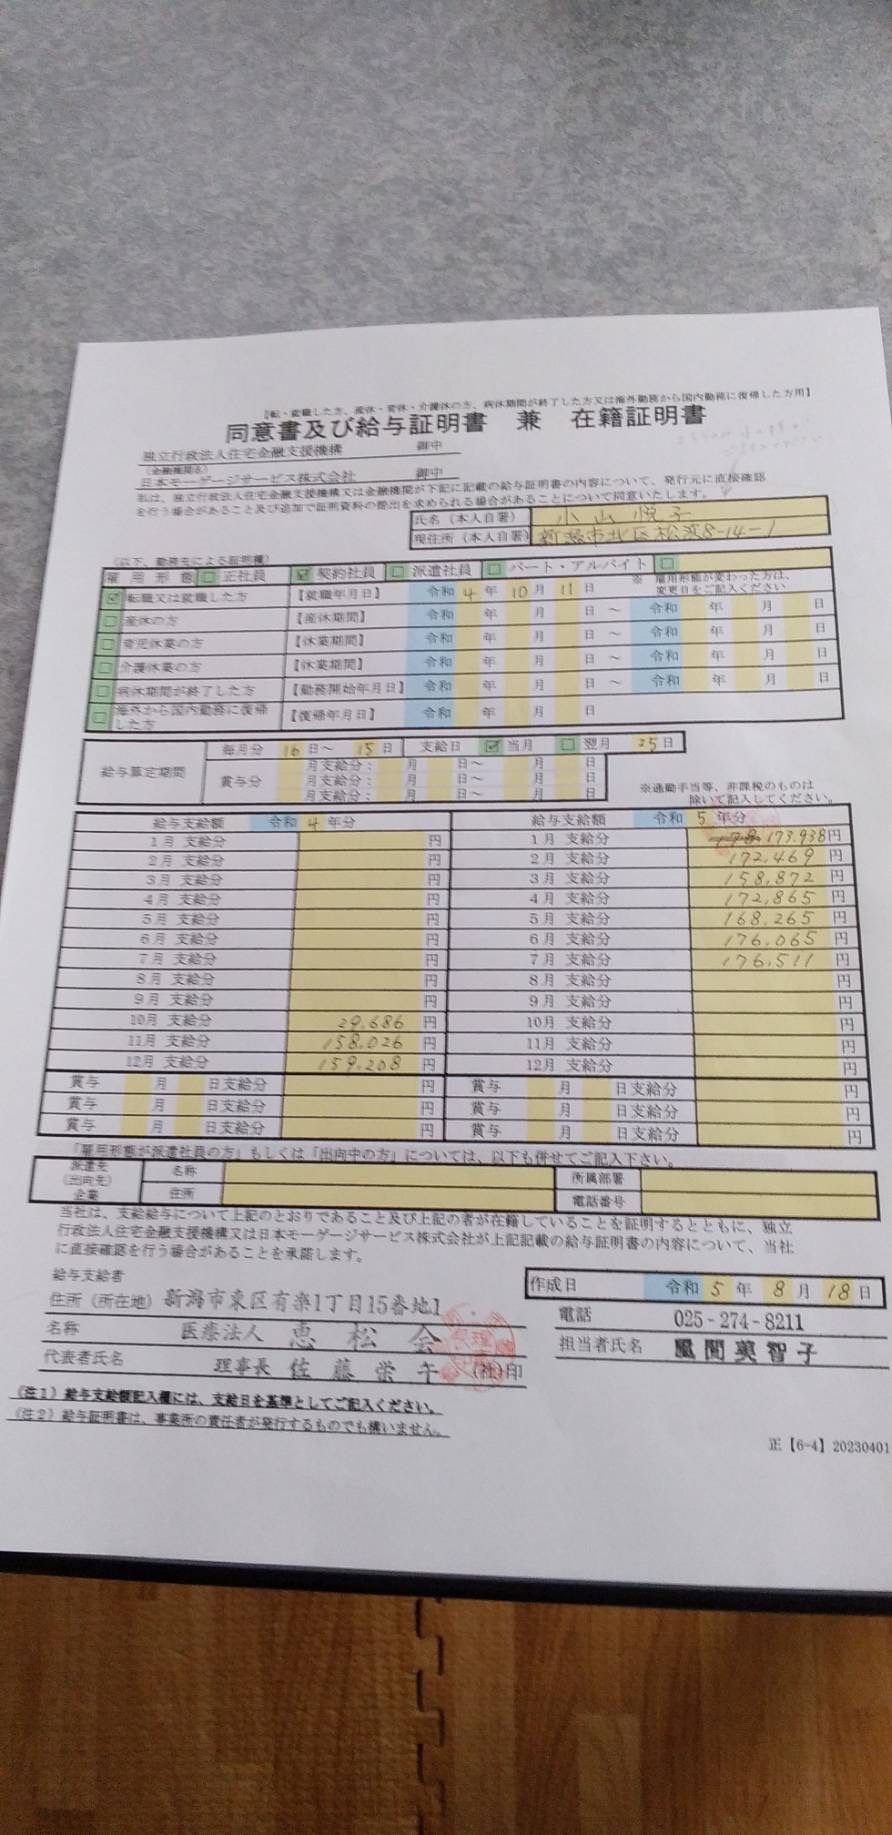 【転・就職した方、産休・育休・介護休の方、病休期間が終了した方又は海外勤務から国内勤務に復帰した方用】
同意書及び給与証明書 兼 在籍証明書
独立行政法人住宅金融支援機構 御中
(金融機関名)
日本モーゲージサービス株式会社 御中
私は、独立行政法人住宅金融支援機構又は金融機関が下記に記載の給与証明書の内容について、発行元に直接確認
を行う場合があること及び追加で証明資料の提出を求められる場合があることについて同意いたします。
氏名(本人自署) 小山 悦子
現住所(本人自署) 新潟市北区松浜8-14-1
(以下、勤務先による証明欄)
雇用形態 □ 正社員 ☑ 契約社員 □ 派遣社員 □ パート・アルバイト □
☑ 転職又は就職した方 【就職年月日】 令和 4 年 10 月 11 日 ※ 雇用形態が変わった方は、
変更日をご記入ください
□ 産休の方 【産休期間】 令和 年 月 日 ~ 令和 年 月 日
□ 育児休業の方 【休業期間】 令和 年 月 日 ~ 令和 年 月 日
□ 介護休業の方 【休業期間】 令和 年 月 日 ~ 令和 年 月 日
□ 病休期間が終了した方 【勤務開始年月日】 令和 年 月 日 ~ 令和 年 月 日
□ 海外から国内勤務に復帰
した方 【復帰年月日】 令和 年 月 日
給与算定期間 毎月分 16 日~ 15 日 支給日 ☑ 当月 □ 翌月 25 日
賞与分 月支給分: 月 日~ 月 日
月支給分: 月 日~ 月 日
月支給分: 月 日~ 月 日
※通勤手当等、非課税のものは
除いて記入してください。
給与支給額 令和 4 年分 給与支給額 令和 5 年分
1月 支給分 円 1月 支給分 178, 173,938円
2月 支給分 円 2月 支給分 172,469 円
3月 支給分 円 3月 支給分 158,872 円
4月 支給分 円 4月 支給分 172,865 円
5月 支給分 円 5月 支給分 168,265 円
6月 支給分 円 6月 支給分 176,065 円
7月 支給分 円 7月 支給分 176,511 円
8月 支給分 円 8月 支給分 円
9月 支給分 円 9月 支給分 円
10月 支給分 29,686 円 10月 支給分 円
11月 支給分 158,026 円 11月 支給分 円
12月 支給分 159,208 円 12月 支給分 円
賞与 月 日支給分 円 賞与 月 日支給分 円
賞与 月 日支給分 円 賞与 月 日支給分 円
賞与 月 日支給分 円 賞与 月 日支給分 円
「雇用形態が派遣社員の方」もしくは「出向中の方」については、以下も併せてご記入下さい。
派遣先
(出向先)
企業
名称 所属部署
住所 電話番号
当社は、支給給与について上記のとおりであること及び上記の者が在籍していることを証明するとともに、独立
行政法人住宅金融支援機構又は日本モーゲージサービス株式会社が上記記載の給与証明書の内容について、当社
に直接確認を行う場合があることを承諾します。
給与支給者 作成日 令和 5 年 8 月 18 日
住所(所在地) 新潟市東区有楽1丁目15番地1 電話 025-274-8211
名称 医療法人 恵松会 担当者氏名 風間美智子
代表者氏名 理事長 佐藤栄午 (社)印
(注1)給与支給額記入欄には、支給日を基準としてご記入ください。
(注2)給与証明書は、事業所の責任者が発行するものでも構いません。
正【6-4】20230401